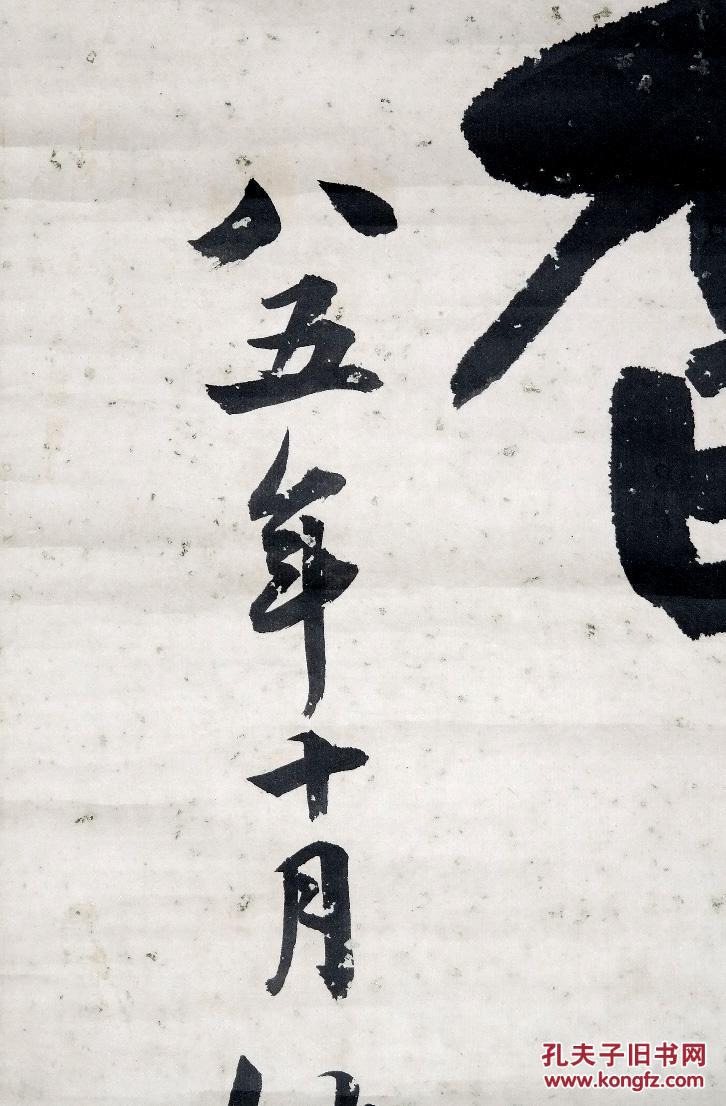 八五年十月
孔夫子旧书网
www.kongfz.com